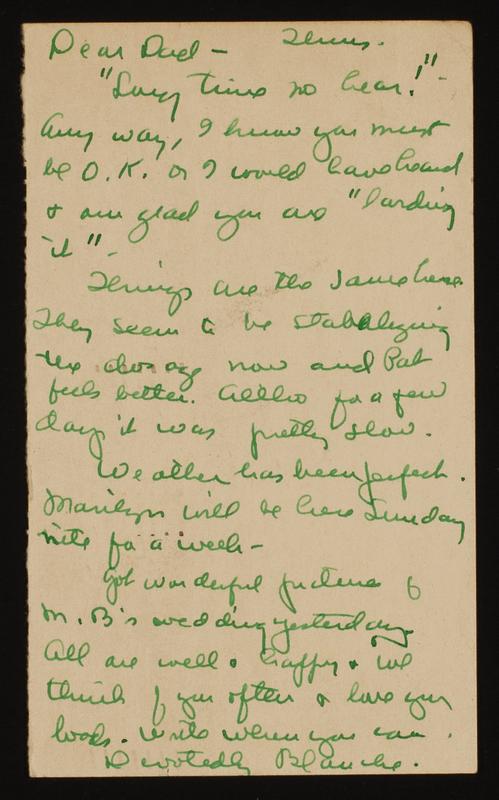 Dear Dad – Thurs.
"Long time no hear!" -
Any way, I know you must
be O.K. or I would have heard
+ am glad you are "lording
it" -
Things are the same here.
They seem to be stabalizing
the dosage now and Pat
feels better. Altho for a few
days it was pretty slow.
Weather has been perfect.
Marilyn will be here Sunday
nite for a week –
Got wonderful pictures of
M. B's wedding yesterday.
All are well + happy + we
think of you often + love you
loads. Write when you can.
Devotedly Blanche.